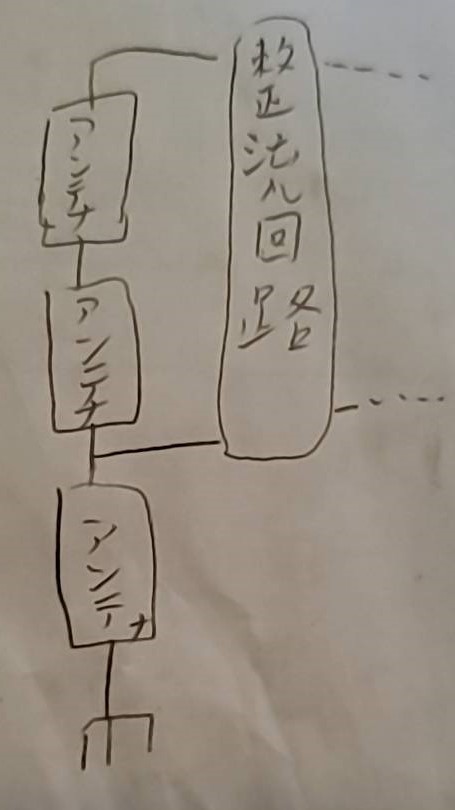 アンテナ
アンテナ
アンテナ
整正流八回路